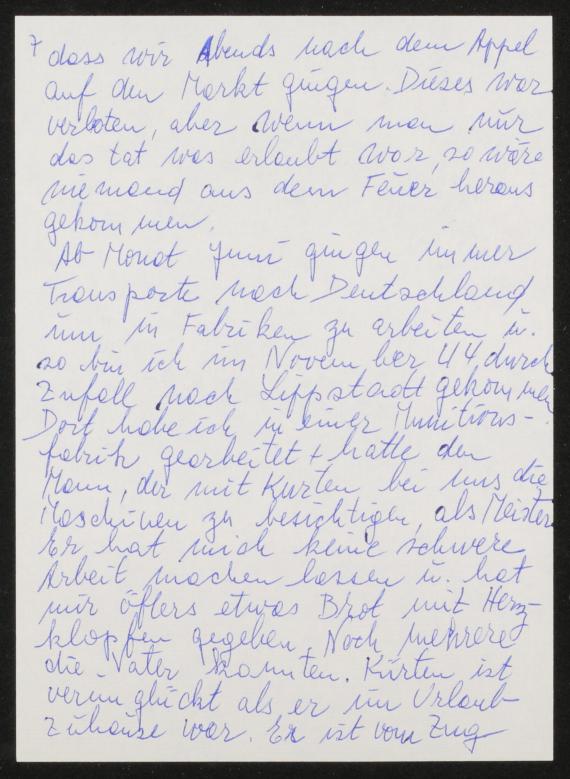 7
dass wir Abends nach dem Appel
auf den Markt gingen. Dieses war
verboten, aber wenn man nur
das tat was erlaubt war, so wäre
niemand aus dem Feuer heraus
gekommen.
Ab Monat Juni gingen immer
Transporte nach Deutschland
um in Fabriken zu arbeiten u.
so bin ich im November 44 durch
Zufall nach Lippstadt gekommen.
Dort habe ich in einer Munitions-
fabrik gearbeitet + hatte den
Mann, der mit Kurten bei uns die
Maschinen zu besichtigen, als Meister.
Er hat mich keine schwere
Arbeit machen lassen u. hat
mir öfters etwas Brot mit Herz-
klopfen gegeben. Noch mehrere
die Vater kannten. Kürten ist
verunglückt als er im Urlaub
zuhause war. Er ist vom Zug